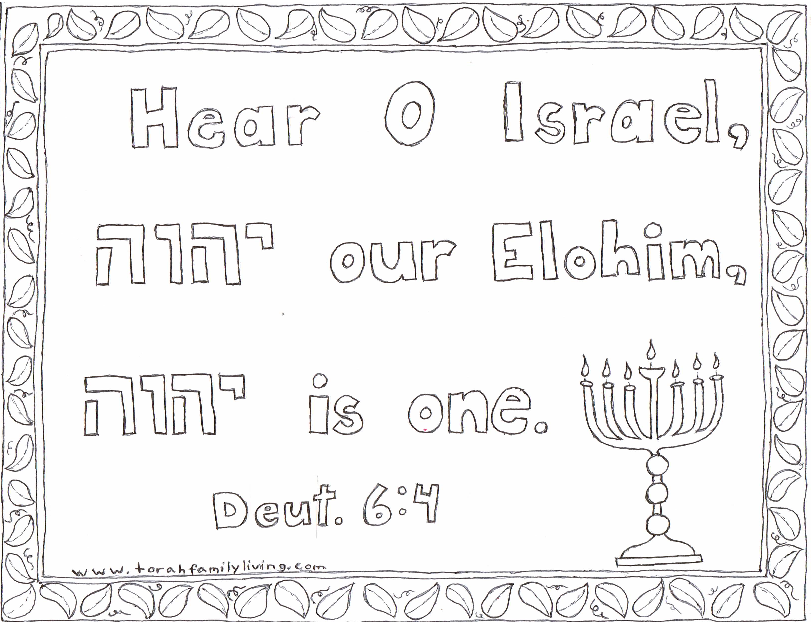 Hear O Israel,
יהוה our Elohim,
יהוה is one.
Deut. 6:4
www.torahfamilyliving.com